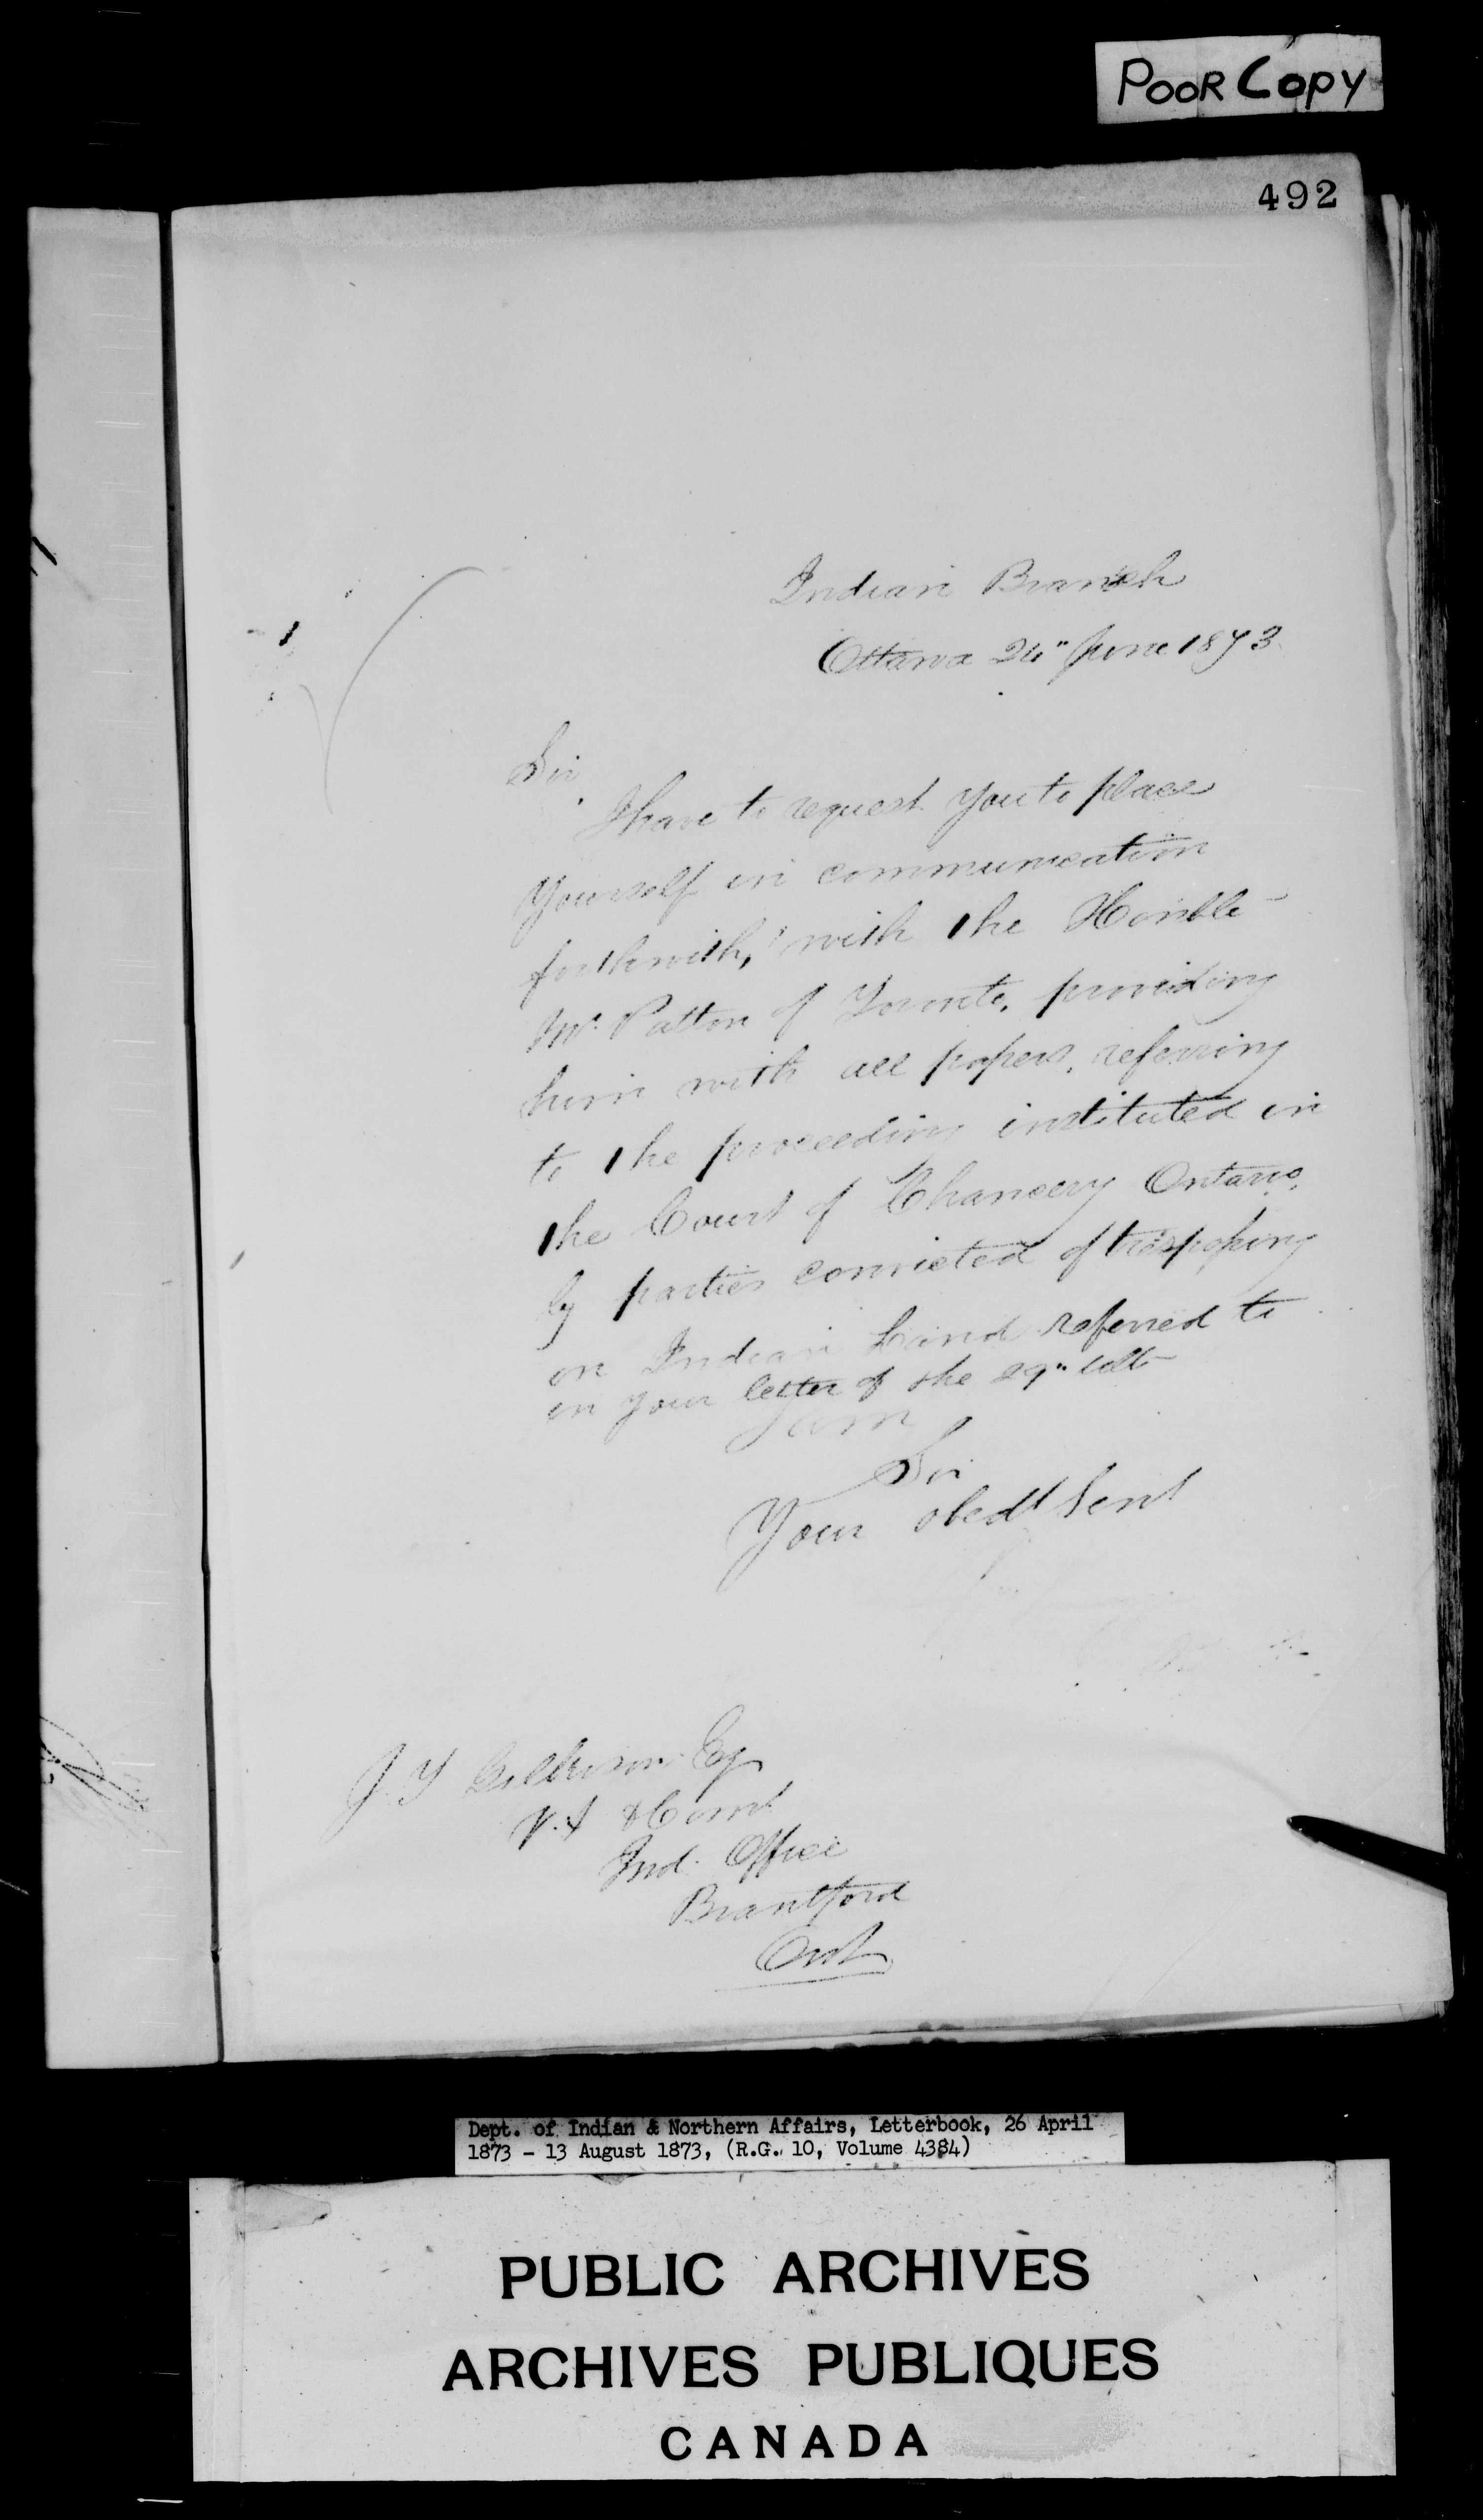 POOR COPY
492
Indian Branch
Ottawa 24" June 1873
Sir
I have to request you to place
yourself in communication
forthwith, with the Honble
Mr. Patton of Toronto, providing
him with all papers, referring
to the proceeding instituted in
the Court of Chancery Ontario,
by parties convicted of trespassing
on Indian Land referred to
in your letter of the 29" ulto
I am
Sir
Your obedt Servt
J. T. Gilkison Esq
V. S. & Comr
Ind. Office
Brantford
Ont
Dept. of Indian & Northern Affairs, Letterbook, 26 April
1873 - 13 August 1873, (R.G. 10, Volume 4384)
PUBLIC ARCHIVES
ARCHIVES PUBLIQUES
CANADA